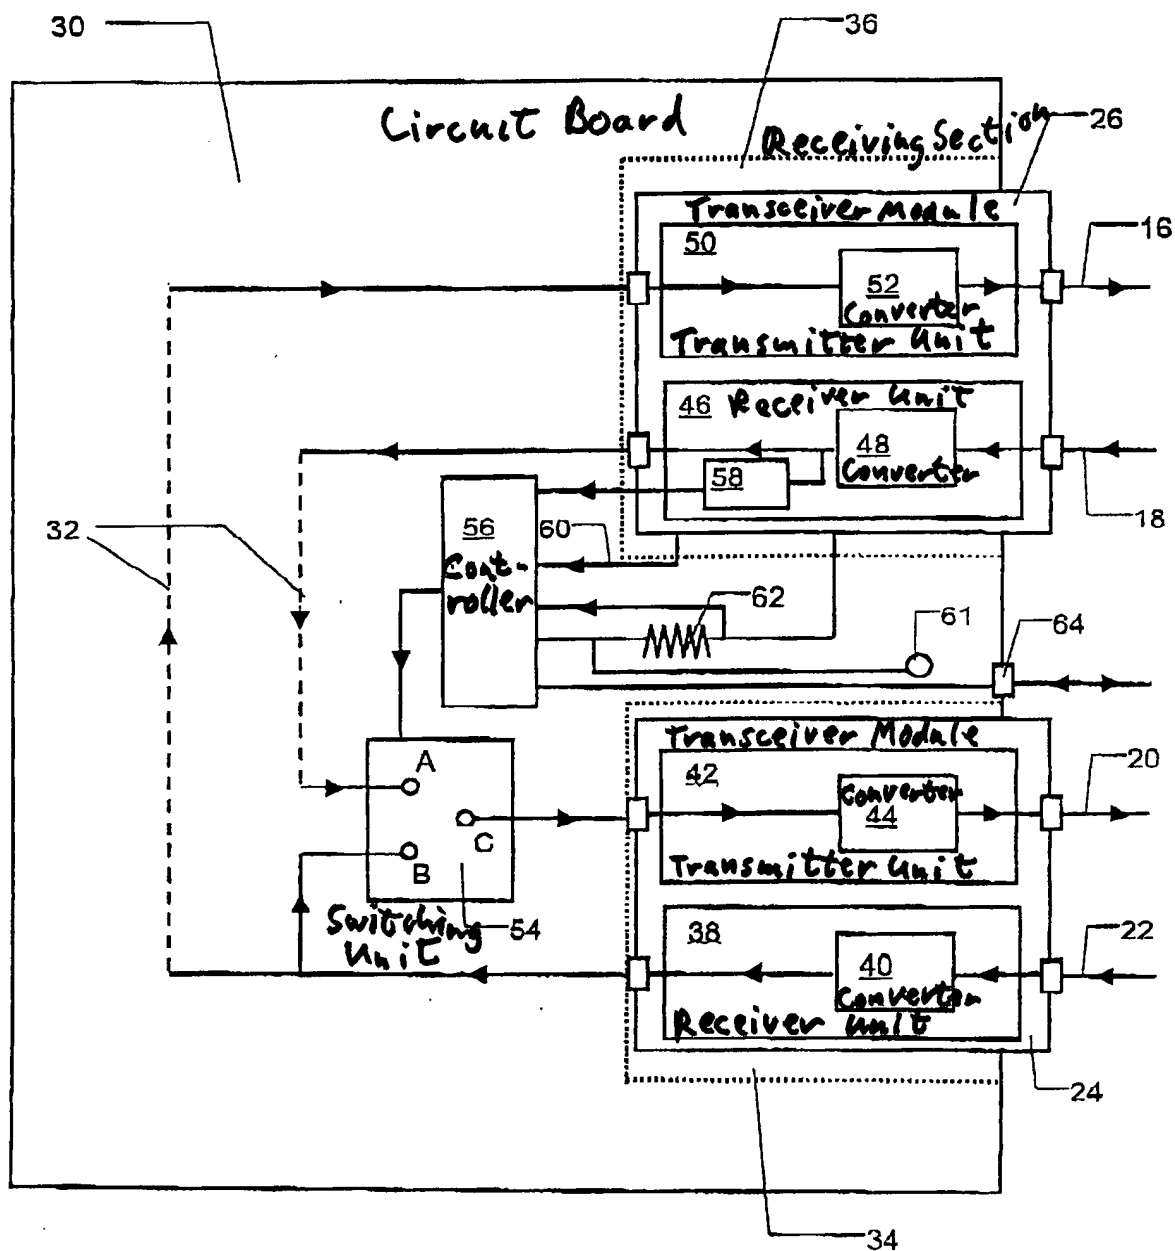 30
36
Circuit Board
Receiving Section
26
Transceiver Module
50
16
52
Converter
Transmitter Unit
46 Receiver Unit
48
Converter
58
18
32
56
Controller
Cont-
roller
60
62
61
64
Transceiver Module
42
Converter
44
20
A
C
B
Transmitter Unit
Switching
Unit
54
38
22
40
Converter
Receiver Unit
24
34